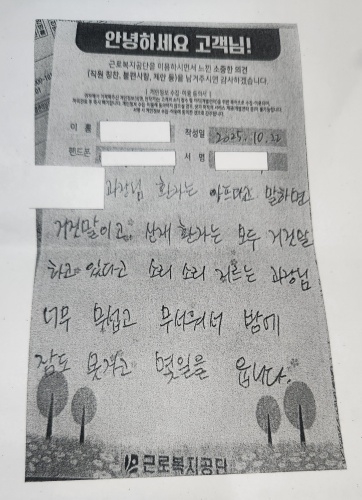 안녕하세요 고객님!
근로복지공단을 이용하시면서 느낀 소중한 의견
(직원 칭찬, 불편사항, 제안 등)을 남겨주시면 감사하겠습니다.
이 름 작성일 2025. 10. 22
핸드폰 서 명
과장님 환자는 아프다고 말하면
거진말이고 산재 환자는 모두 거진말
하고 있다고 소리 소리 지르는 과장님
너무 무섭고 무서워서 밤에
잠도 못자고 몇일을 웁니다.
근로복지공단